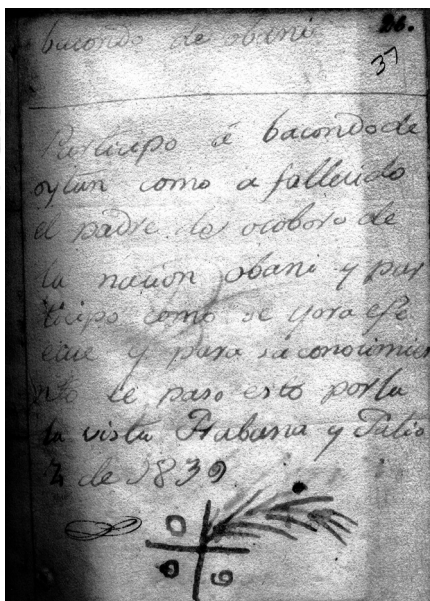 26.
bacondo de obani
37
Participo á bacondo de
oytun como a fallecido
el padre de ocoboro de
la nacion obani y par
ticipo como se yora efe
ecue y para sa conocimien
nto le paso esto por la
la vista Habana y Julio
2 de 1839